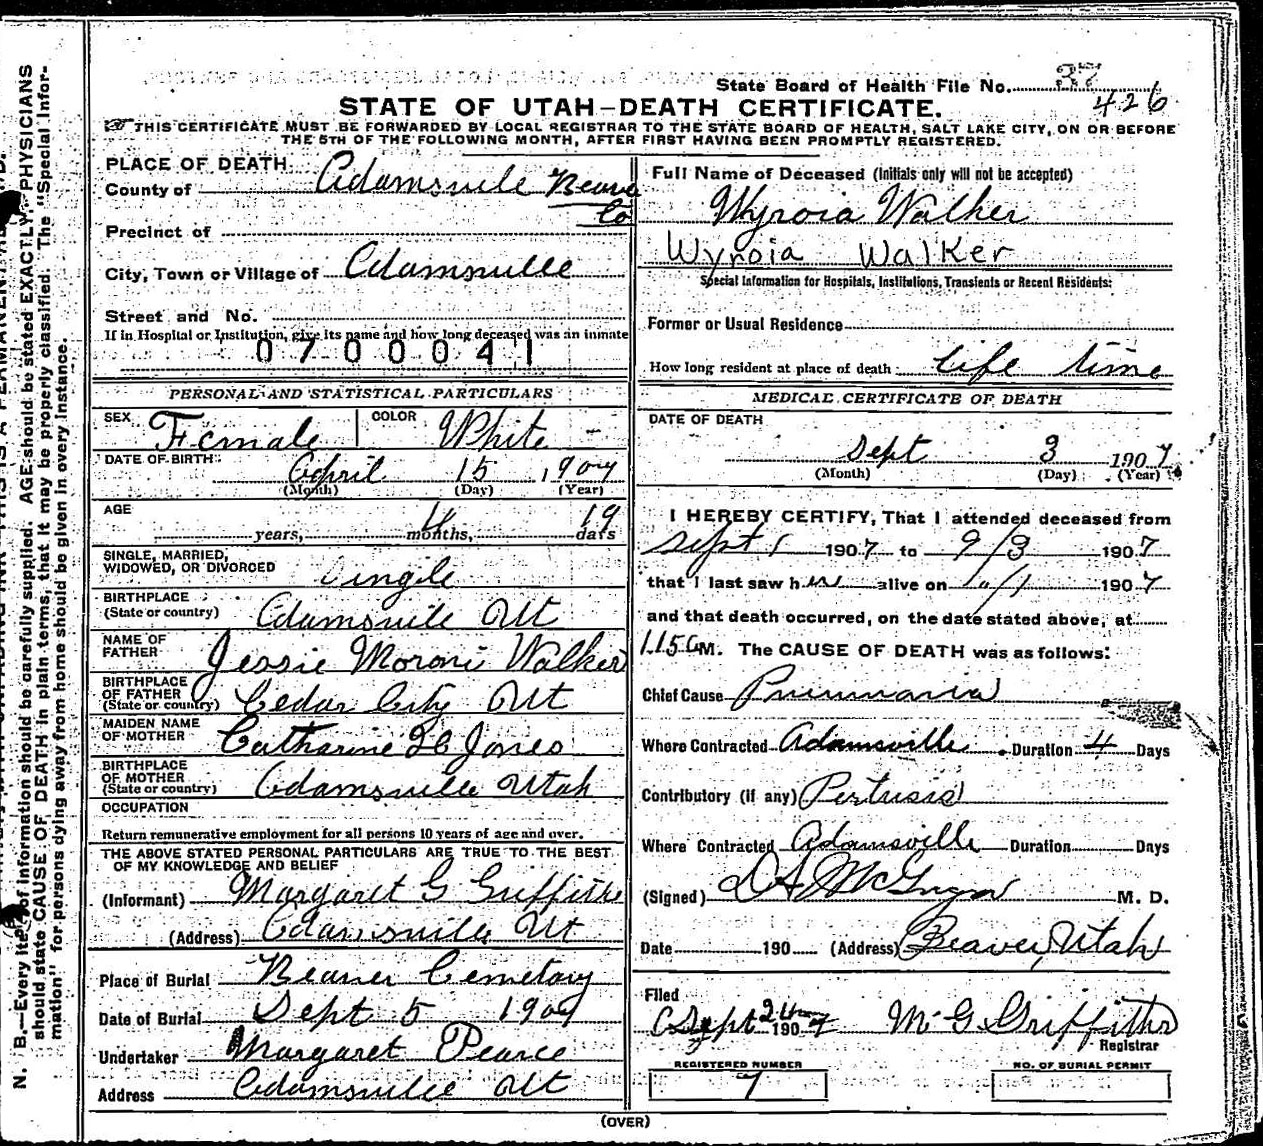 State Board of Health File No. 37
426
STATE OF UTAH—DEATH CERTIFICATE.
THIS CERTIFICATE MUST BE FORWARDED BY LOCAL REGISTRAR TO THE STATE BOARD OF HEALTH, SALT LAKE CITY, ON OR BEFORE
THE 5TH OF THE FOLLOWING MONTH, AFTER FIRST HAVING BEEN PROMPTLY REGISTERED.
PLACE OF DEARTH
County of Adamsville Beaver
Co
Precinct of
City, Town or Village of Adamsville
Street and No.
If in Hospital or Institution, give its name and how long deceased was an inmate
0700041
PERSONAL AND STATISTICAL PARTICULARS
SEX Female COLOR White -
DATE OF BIRTH April 15 1907
(Month) (Day) (Year)
AGE
years, 4 months, 19 days
SINGLE, MARRIED,
WIDOWED, OR DIVORCED Single
BIRTHPLACE
(State or country) Adamsville Ut
NAME OF
FATHER Jessie Moroni Walker
BIRTHPLACE
OF FATHER
(State or country) Cedar City Ut
MAIDEN NAME
OF MOTHER Catharine Jones
BIRTHPLACE
OF MOTHER
(State or country) Adamsville Utah
OCCUPATION
Return remunerative employment for all persons 10 years of age and over.
THE ABOVE STATED PERSONAL PARTICULARS ARE TRUE TO THE BEST
OF MY KNOWLEDGE AND BELIEF
(Informant) Margaret G Griffiths
(Address) Adamsville Ut
Place of Burial Beaver Cemetary
Date of Burial Sept 5 1907
Undertaker Margaret Pearce
Address Adamsville Ut
Full Name of Deceased (Initials only will not be accepted)
Wyroia Walker
Wyroia Walker
Special Information for Hospitals, Institutions, Transients or Recent Residents:
Former or Usual Residence
How long resident at place of death life time
MEDICAL CERTIFICATE OF DEATH
DATE OF DEATH
Sept 3 1907
(Month) (Day) (Year)
I HEREBY CERTIFY, That I attended deceased from
Sept 1 1907 to 9/3 1907
that I last saw her alive on "/1 1907
and that death occurred, on the date stated above, at
1.15 a M. The CAUSE OF DEATH was as follows:
Chief Cause Pneumonia
Where Contracted Adamsville Duration 4 Days
Contributory (if any) Pertusis
Where Contracted Adamsville Duration Days
(Signed) M. D.
Date 190 (Address) Beaver, Utah
Filed
Sept 1907 M G Griffiths
Registrar
REGISTERED NUMBER
7
NO. OF BURIAL PERMIT
(OVER)
N. B.—Every item of information should be carefully supplied. AGE should be stated EXACTLY. PHYSICIANS
should state CAUSE OF DEATH in plain terms, that it may be properly classified. The "Special Infor-
mation" for persons dying away from home should be given in every instance.